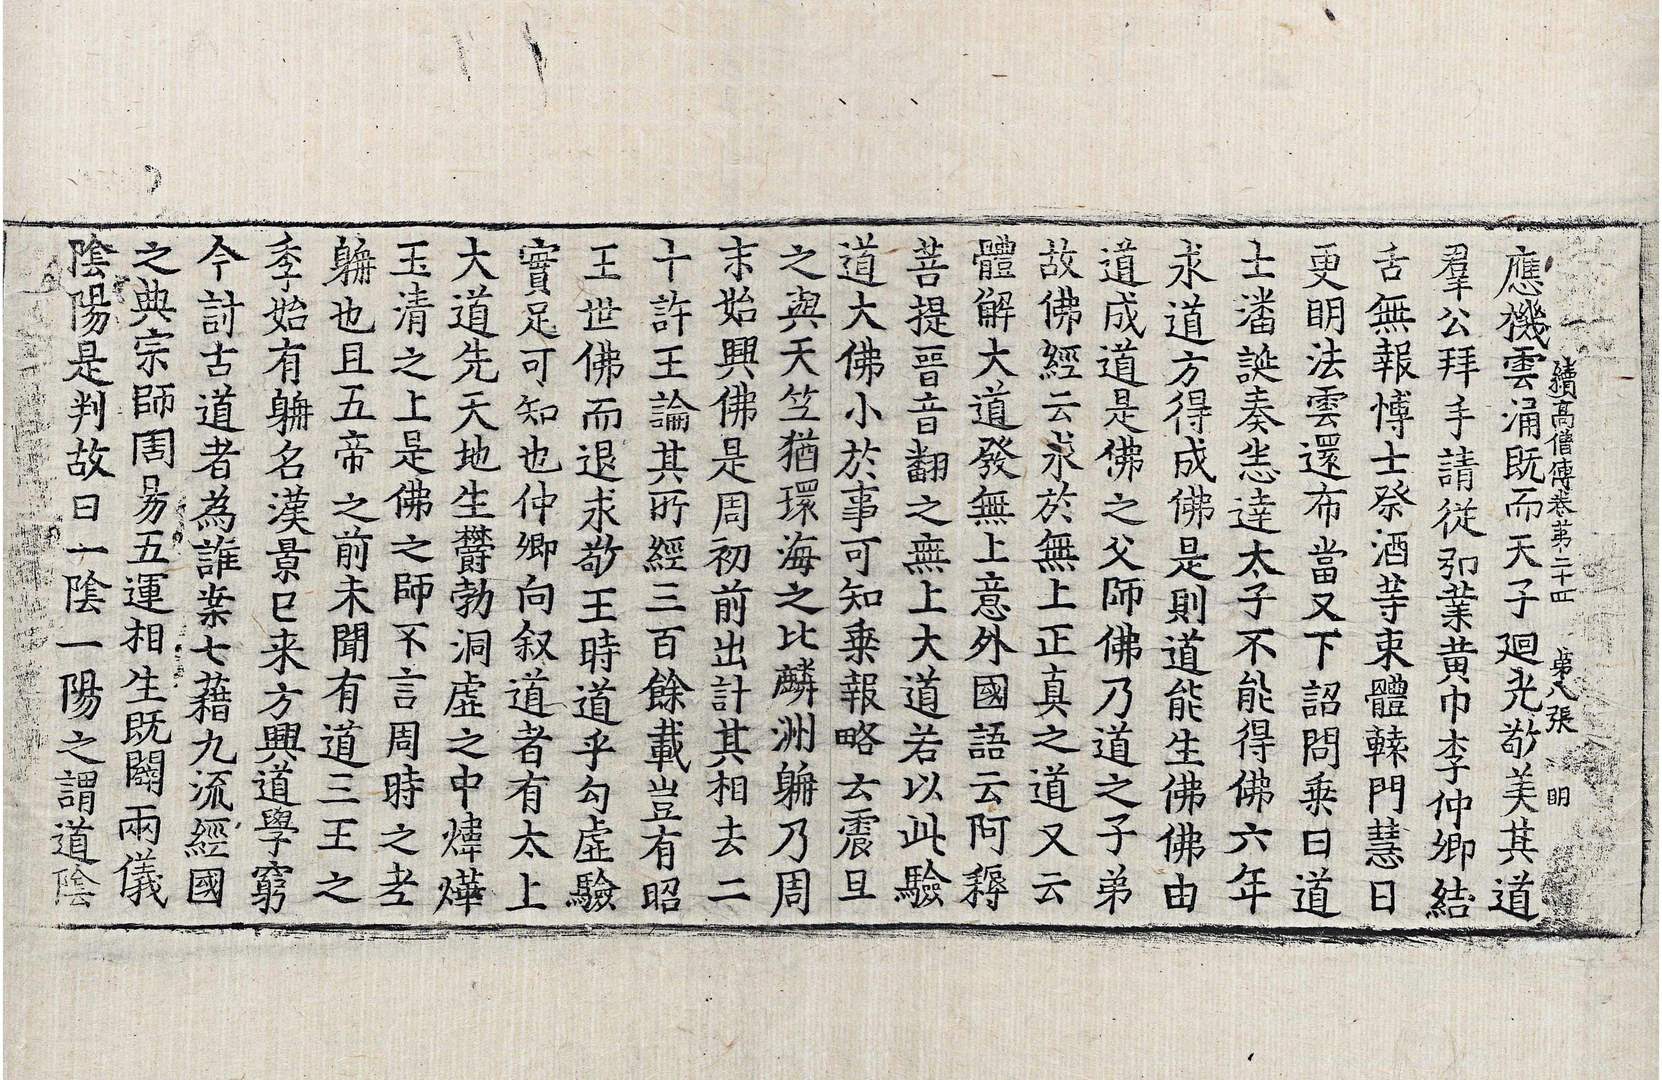 續高僧傳卷第二十四　第八張　明
應機雲涌既而天子廻光敬美其道
羣公拜手請從弘業黄巾李仲卿結
舌無報博士祭酒等束體轅門慧日
更明法雲還布當又下詔問乗曰道
士潘誕奏悉達太子不能得佛六年
求道方得成佛是則道能生佛佛由
道成道是佛之父師佛乃道之子弟
故佛經云求於無上正真之道又云
體解大道發無上意外國語云阿耨
菩提晋音翻之無上大道若以此驗
道大佛小於事可知乗報略云震旦
之與天竺猶環海之比麟洲聃乃周
末始興佛是周初前出計其相去二
十許王論其所經三百餘載豈有昭
王世佛而退求敬王時道乎勾虛驗
實足可知也仲卿向叙道者有太上
大道先天地生欝勃洞虛之中煒燁
玉清之上是佛之師不言周時之老
聃也且五帝之前未聞有道三王之
季始有聃名漢景已来方興道學窮
今討古道者為誰案七藉九流經國
之典宗師周易五運相生既闢兩儀
陰陽是判故曰一陰一陽之謂道陰